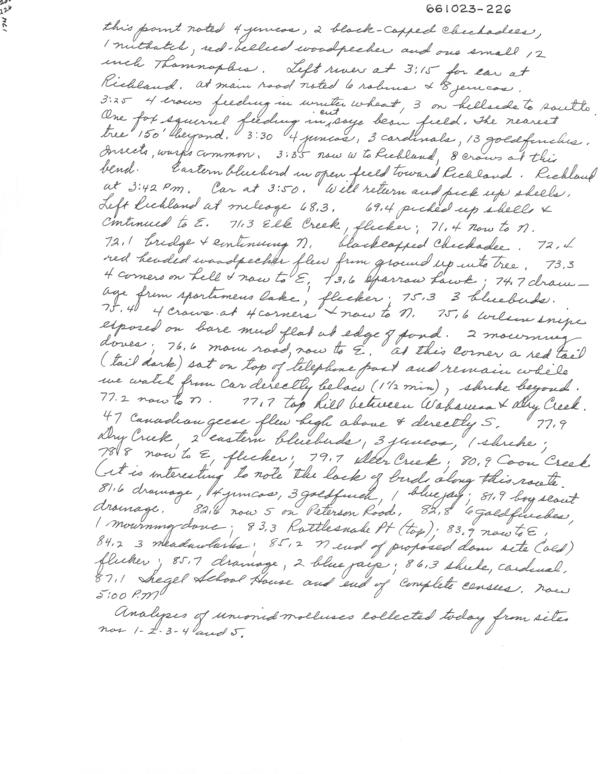 661023-226
this point noted 4 juncos, 2 black-capped chickadees,
1 nuthatch, red-bellied woodpecker and one small 12
inch Thamnophis. Left river at 3:15 for car at
Richland. At main road noted 6 robins & 8 juncos.
3:25 4 crows feeding in winter wheat, 3 on hillside to south.
One fox squirrel feeding in cut soya bean field. The nearest
tree 150' beyond. 3:30 4 juncos, 3 cardinals, 13 goldfinches.
Insects, wasps common. 3:35 now W to Richland, 8 crows at this
bend. Eastern bluebird in open field toward Richland. Richland
at 3:42 P.M. Car at 3:50. Will return and pick up shells.
Left Richland at mileage 68.3. 69.4 picked up shells &
continued to E. 71.3 Elk Creek, flicker; 71.4 now to N.
72.1 bridge & continuing N. blackcapped chickadee. 72.4
red headed woodpecker flew from ground up into tree. 73.3
4 corners on hill & now to E; 73.6 sparrow hawk; 74.7 drain-
age from sportsmens lake, flicker; 75.3 3 bluebirds.
75.4 4 crows at 4 corners & now to N. 75.6 Wilson snipe
exposed on bare mud flat at edge of pond. 2 mourning
doves; 76.6 main road, now to E. At this corner a red tail
(tail dark) sat on top of telephone post and remain while
we watch from car derectly below (1½ min), shrike beyond.
77.2 now to N. 77.7 top hill between Wabaunsa & Dry Creek.
47 Canadian geese flew high above & derectly S. 77.9
Dry Creek, 2 eastern bluebirds, 3 juncos, 1 shrike;
78.8 now to E, flicker; 79.7 Deer Creek; 80.9 Coon Creek
(it is interesting to note the lack of birds along this route.
81.6 drainage, 14 juncos, 3 goldfinch, 1 bluejay; 81.9 boy scout
drainage. 82.6 now S on Peterson Road. 82.8 6 goldfinches,
1 mourning dove; 83.3 Rattlesnake Pt (top); 83.9 now to E;
84.2 3 meadowlarks; 85.2 N end of proposed dam site (old)
flicker; 85.7 drainage, 2 blue jays; 86.3 shrike, cardinal.
87.1 Siegel School House and end of complete census. now
5:00 P.M.
Analysis of unionid molluscs collected today from sites
nos 1-2-3-4 and 5.